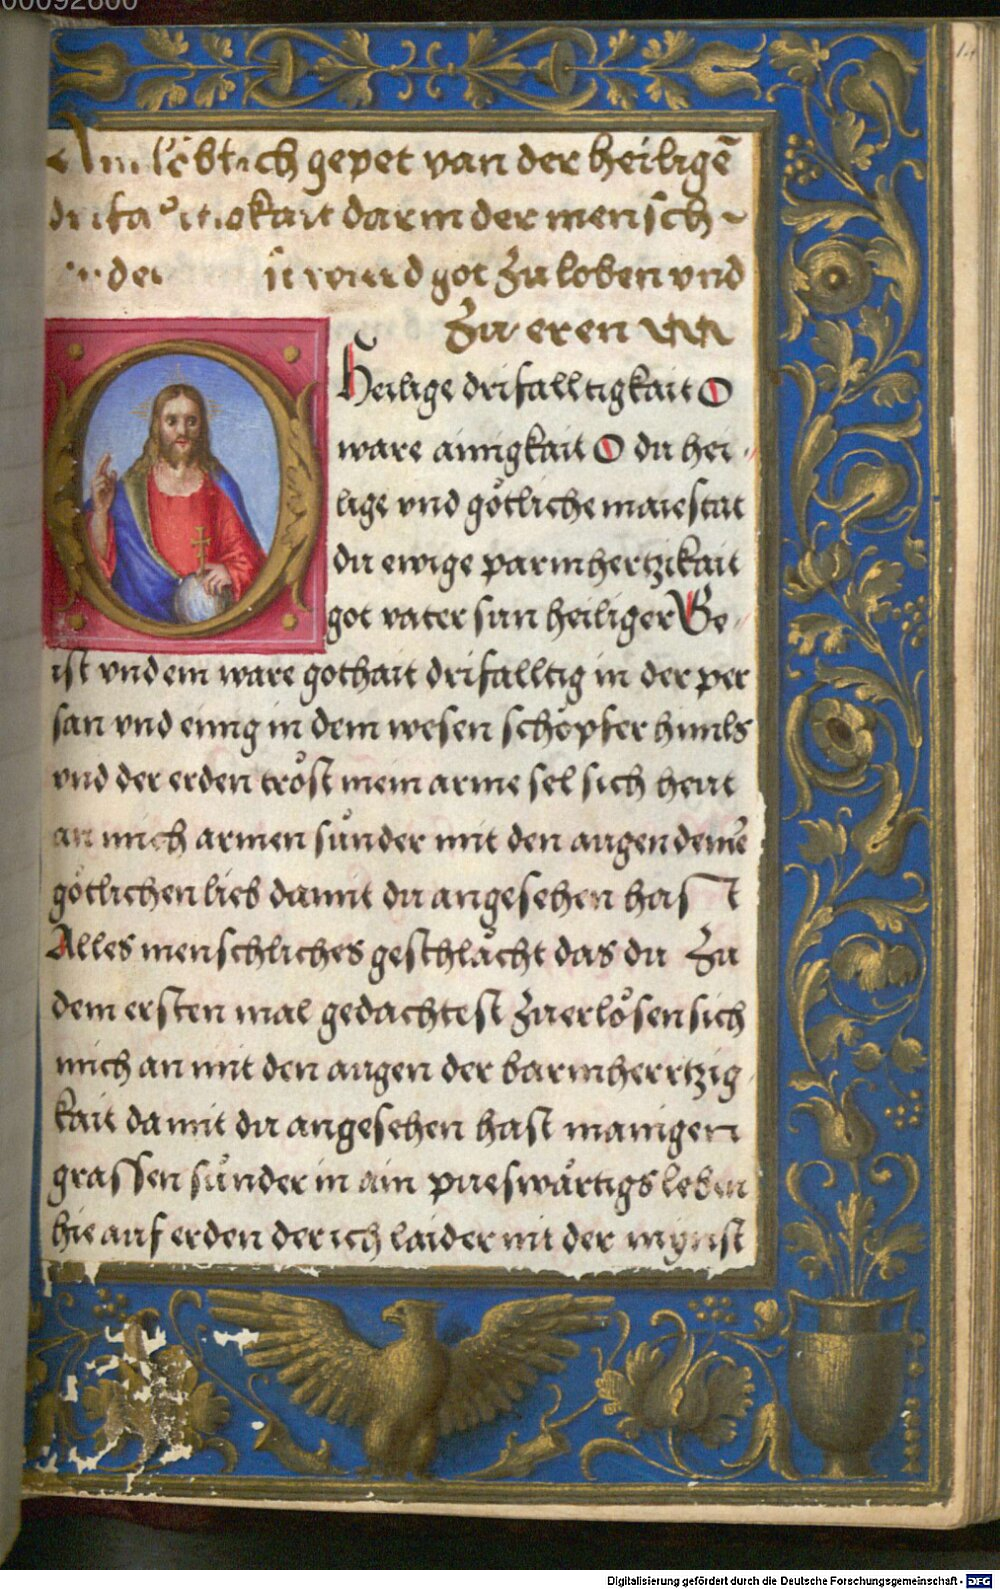 00092600
14
Ain löblich gepet van der heiligē
darin der mensch ~
got zu loben vnd
zu eren
Heilige drifalltigkait O
ware ainigkait O du hei
lige vnd götliche maiestat
du ewige parmhertzikait
got vater sun heiliger Ge
ist vnd ein ware gothait drifalltig in der per
san vnd einig in dem wesen schöpfer himls
vnd der erden tröst mein arme sel sich heut
an mich armen sünder mit den augen deine
götlichen lieb damit du angesehen hast
Alles menschliches geschlächt das du zu
dem ersten mal gedachtest zu erlösen sich
mich an mit den augen der barmherrtzig
kait damit du angesehen hast manigen
grassen sünder in ain pueswärtigs leben
hie auf erden der ich laider nit der mynst
Digitalisierung gefördert durch die Deutsche Forschungsgemeinschaft - DFG